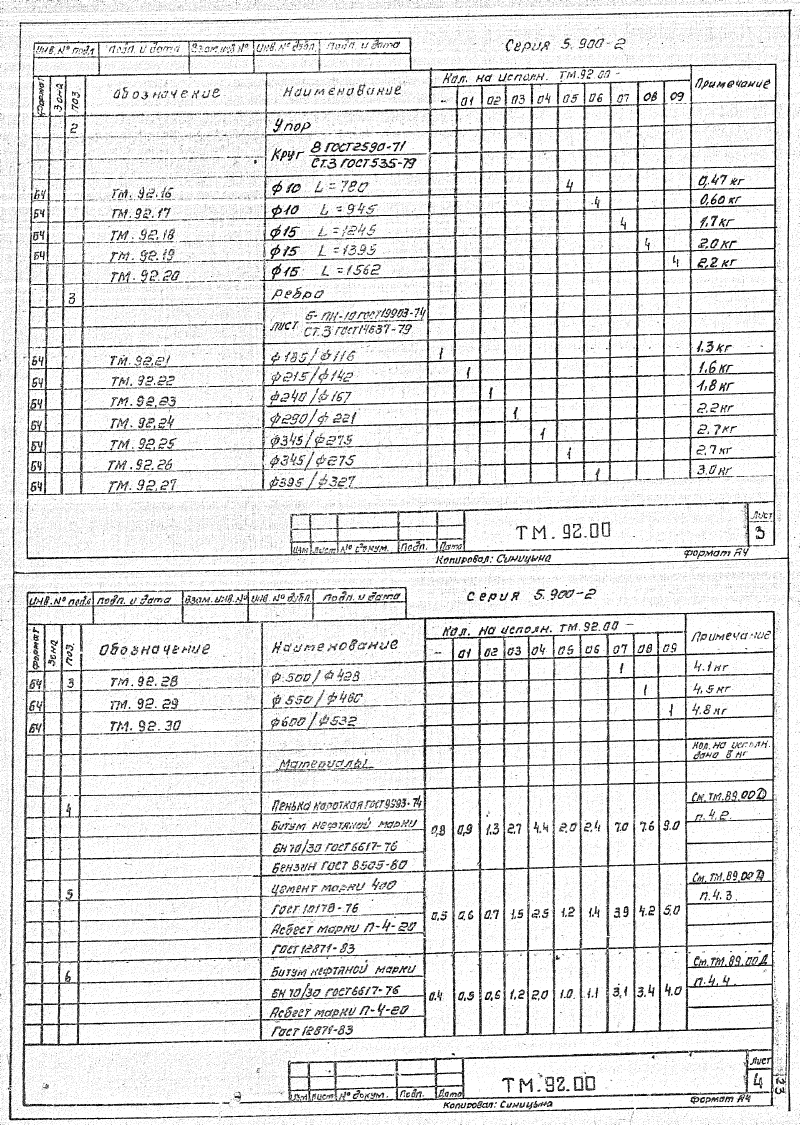 Серия 5.900-2
Инв. № подл. Подп. и дата Взам. инв. № Инв. № дубл. Подп. и дата
Формат Зона Поз. Обозначение Наименование Кол. на исполн. ТМ.92.00 - Примечание
- 01 02 03 04 05 06 07 08 09
2 Упор
Круг В ГОСТ 2590-71
Ст.3 ГОСТ 535-79
БЧ ТМ.92.16 ф10 L=780 4 0,47 кг
БЧ ТМ.92.17 ф10 L=945 4 0,60 кг
БЧ ТМ.92.18 ф15 L=1245 4 1,7 кг
БЧ ТМ.92.19 ф15 L=1395 4 2,0 кг
ТМ.92.20 ф15 L=1562 4 2,2 кг
3 Ребро
Лист Б-ПН-10 ГОСТ 19903-74
Ст.3 ГОСТ 14637-79
БЧ ТМ.92.21 ф185/ф116 1 1.3 кг
БЧ ТМ.92.22 ф215/ф142 1 1.6 кг
БЧ ТМ.92.23 ф240/ф167 1 1,8 кг
БЧ ТМ.92.24 ф290/ф221 1 2.2 кг
БЧ ТМ.92.25 ф345/ф275 1 2.7 кг
БЧ ТМ.92.26 ф345/ф275 1 2.7 кг
БЧ ТМ.92.27 ф395/ф327 1 3.0 кг
Изм Лист № докум. Подп. Дата ТМ.92.00 Лист 3
Копировал: Синицына Формат А4
Серия 5.900-2
Инв. № подл. Подп. и дата Взам. инв. № Инв. № дубл. Подп. и дата
Формат Зона Поз. Обозначение Наименование Кол. на исполн. ТМ.92.00 - Примечание
- 01 02 03 04 05 06 07 08 09
БЧ 3 ТМ.92.28 ф500/ф428 1 4.1 кг
БЧ ТМ.92.29 ф550/ф480 1 4,5 кг
БЧ ТМ.92.30 ф600/ф532 1 4.8 кг
Кол. на исполн.
дана в кг
Материалы
4 Пенька короткая ГОСТ 9993-74 См. ТМ.89.00 Д
Битум нефтяной марки 0,8 0,9 1.3 2.7 4.4 2.0 2.4 7.0 7.6 9.0 п.4.2
БН 70/30 ГОСТ 6617-76
Бензин ГОСТ 8505-80
5 Цемент марки 400 См. ТМ.89.00 Д
ГОСТ 10178-76 0,5 0,6 0.7 1.5 2.5 1.2 1.4 3.9 4.2 5.0 п.4.3
Асбест марки П-4-20
ГОСТ 12871-83
6 Битум нефтяной марки См. ТМ.89.00 Д
БН 70/30 ГОСТ 6617-76 0.4 0,5 0,6 1.2 2.0 1.0 1.1 3,1 3.4 4.0 п.4.4
Асбест марки П-4-20
ГОСТ 12871-83
Изм Лист № докум. Подп. Дата ТМ.92.00 Лист 4
23
Копировал: Синицына Формат А4